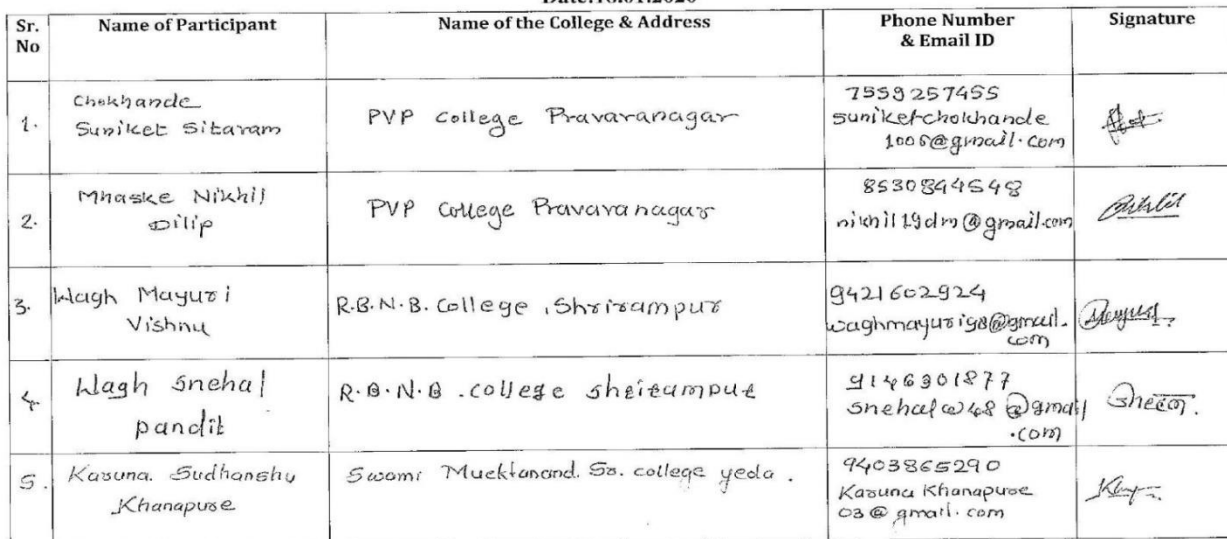 Sr. No
Name of Participant
Name of the College & Address
Phone Number & Email ID
Signature
1.
Chokhande
Suniket Sitaram
PVP College Pravaranagar
7559257455
suniketchokhande
1006@gmail.com
2.
Mhaske Nikhil
Dilip
PVP College Pravaranagar
8530844548
nikhil19dm@gmail.com
3.
Wagh Mayuri
Vishnu
R.B.N.B. College, Shrirampur
9421602924
waghmayuri98@gmail.
com
4.
Wagh Snehal
pandit
R.B.N.B. college shrirampur
9146301877
snehalw48@gmail
.com
5.
Karuna Sudhanshu
Khanapure
Swami Mucktanand. Sr. college yeola.
9403865290
Karuna Khanapure
03@gmail.com